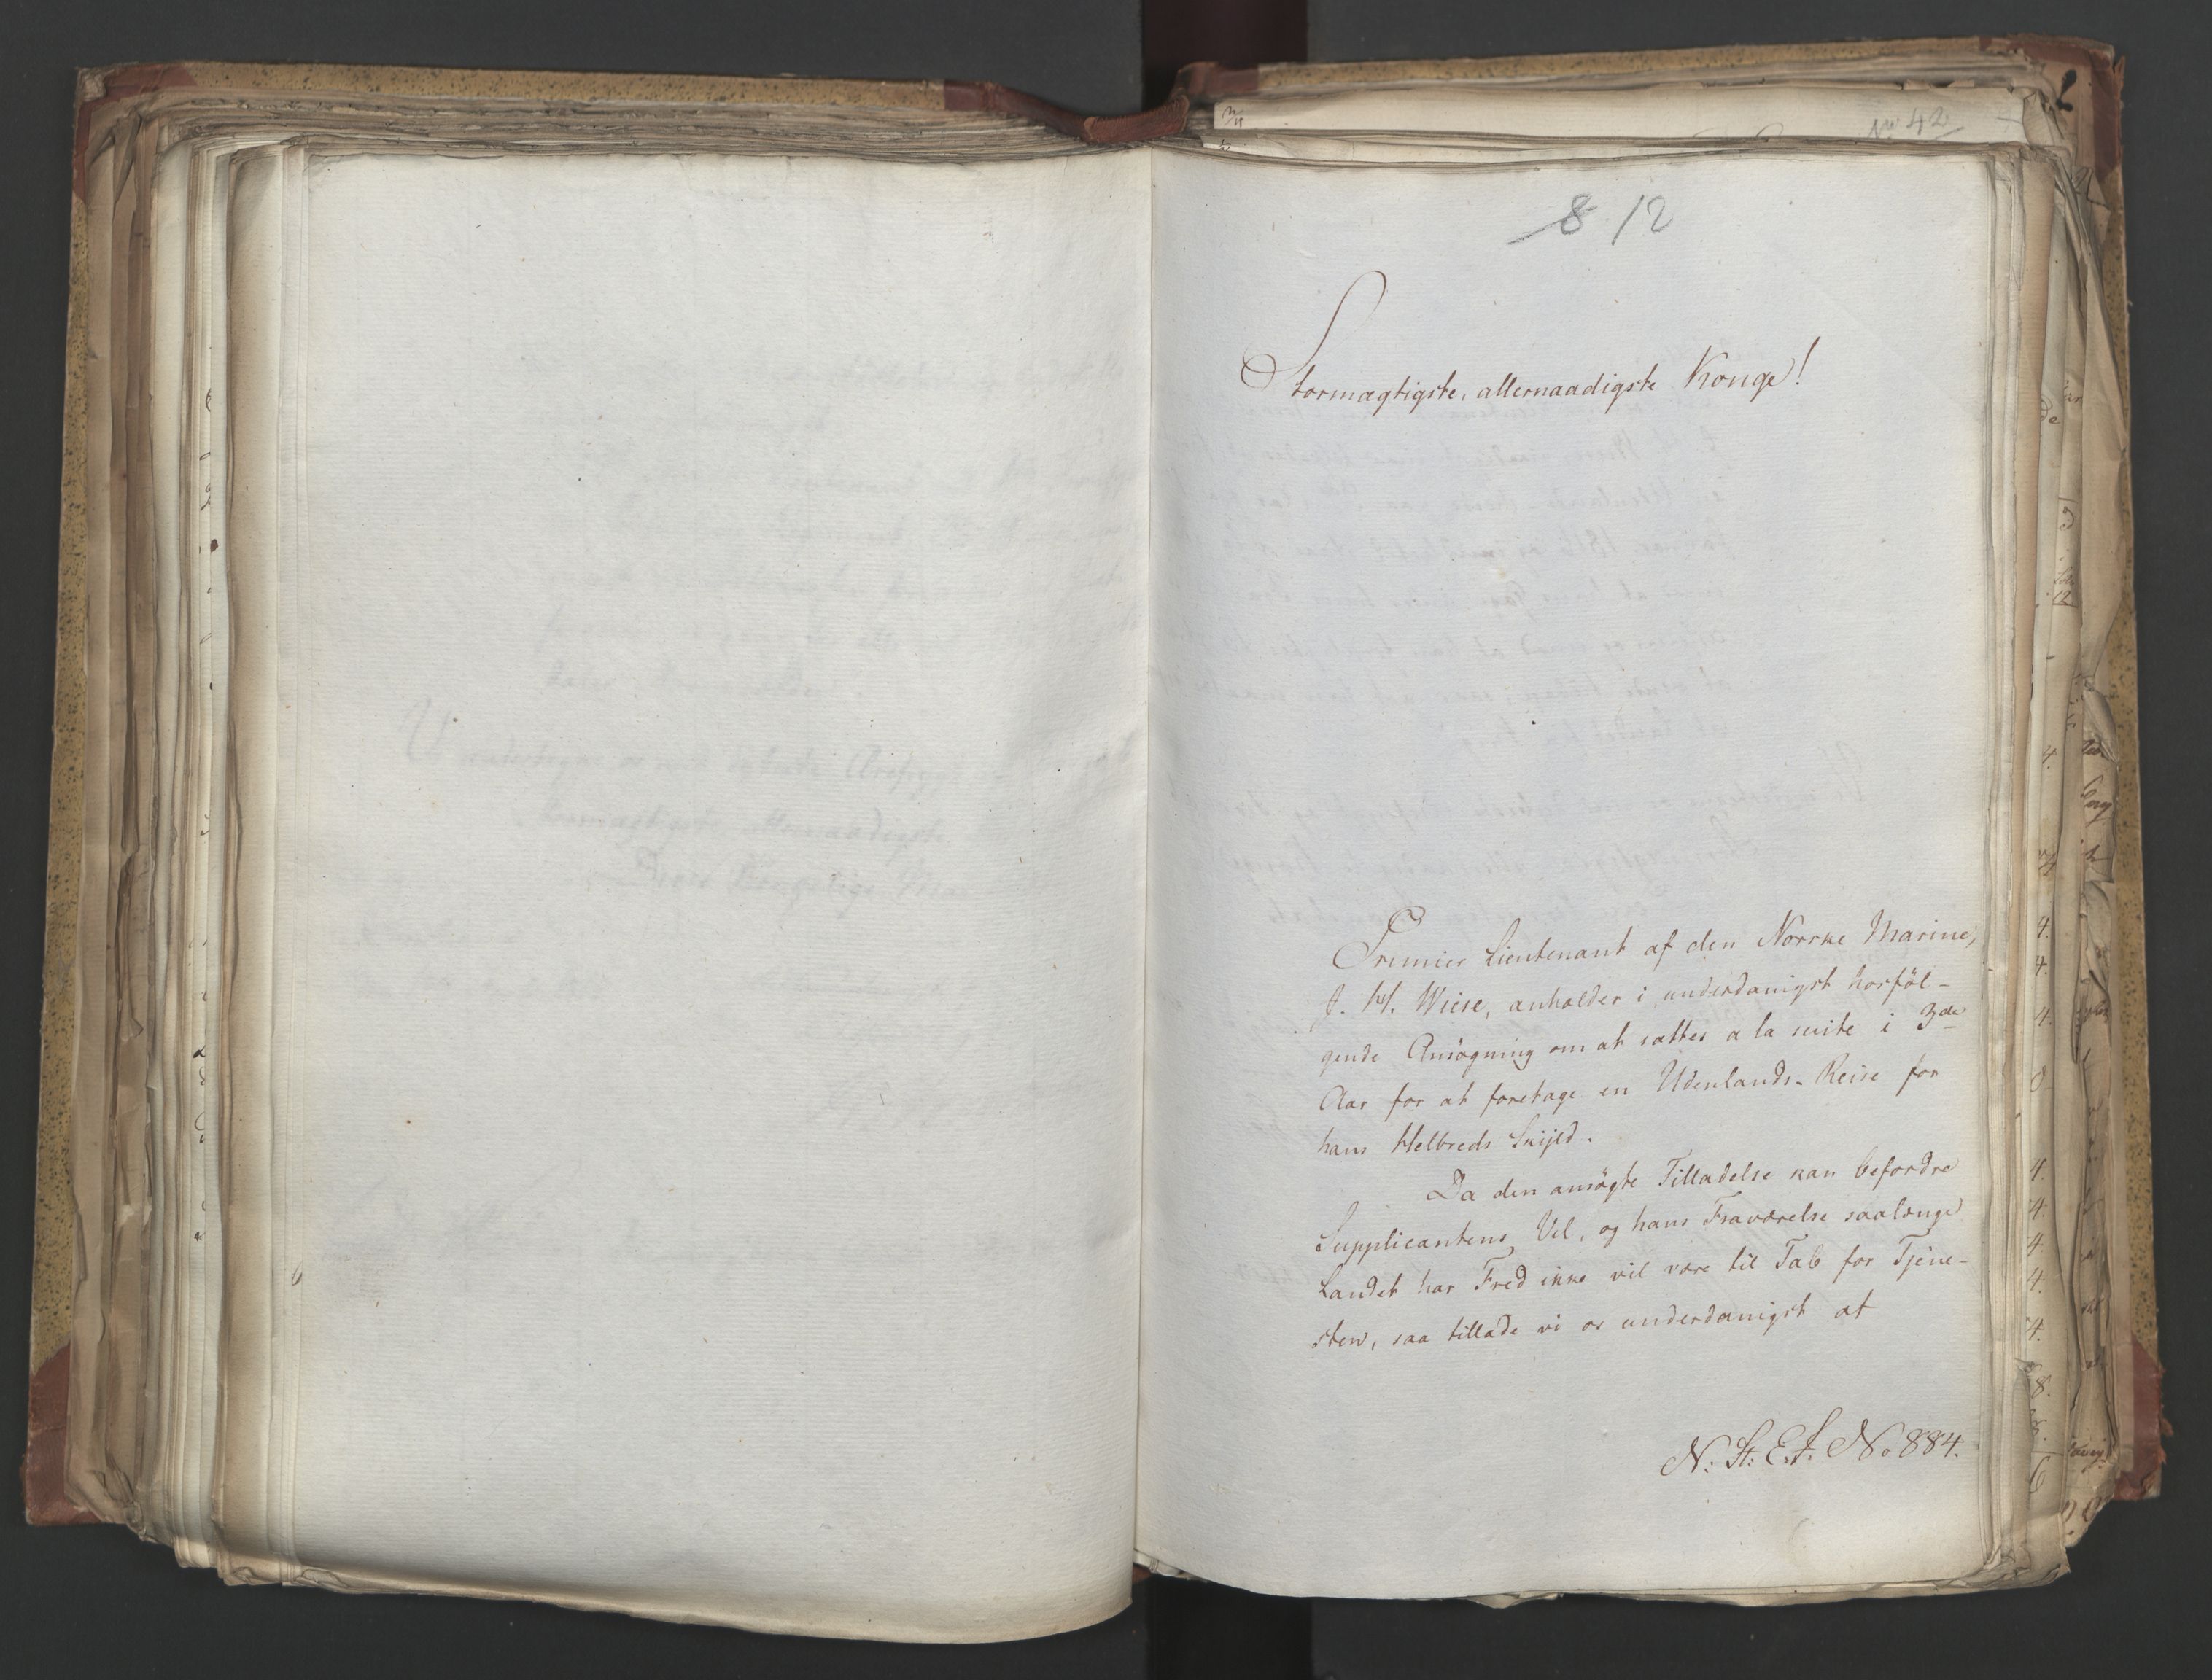 No 42
8 12
Stormægtigste, allernaadigste Konge!
Premier Lieutenant af den Norske Marine,
J. H. Wiese, anholder i underdanigst hosföl-
gende Ansögning om at sættes a la suite i 3de
Aar for at foretage en Udenlands-Reise for
hans Helbreds Skijld.
Da den ansögte Tilladelse kan befordre
Supplicantens Vel, og hans Fraværelse saalænge
Landet har Fred ikke vil være til Tab for Tjene-
sten, saa tillade vi os underdanigst at
N: St: E. J. No 884.